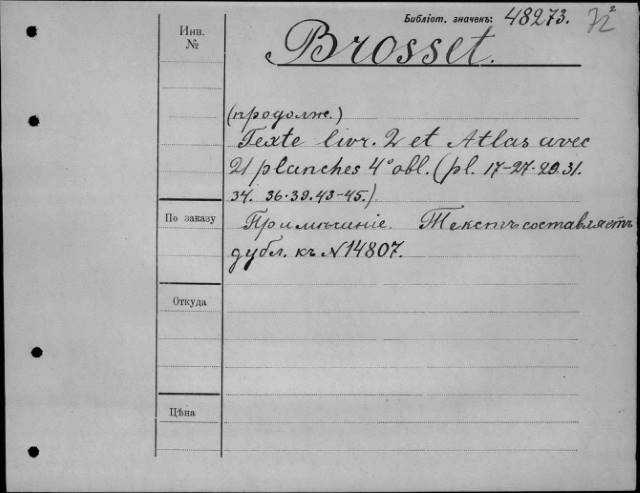 Библіот. значекъ: 48273.
Инв.
№
Brosset.
(продолж.)
Texte livr. 2 et Atlas avec
21 planches 4° obl. (pl. 17-27. 29. 31.
34. 36. 39. 43-45.)
По заказу
Примѣчаніе. Текстъ составляетъ
дубл. къ N 14807.
Откуда
Цѣна